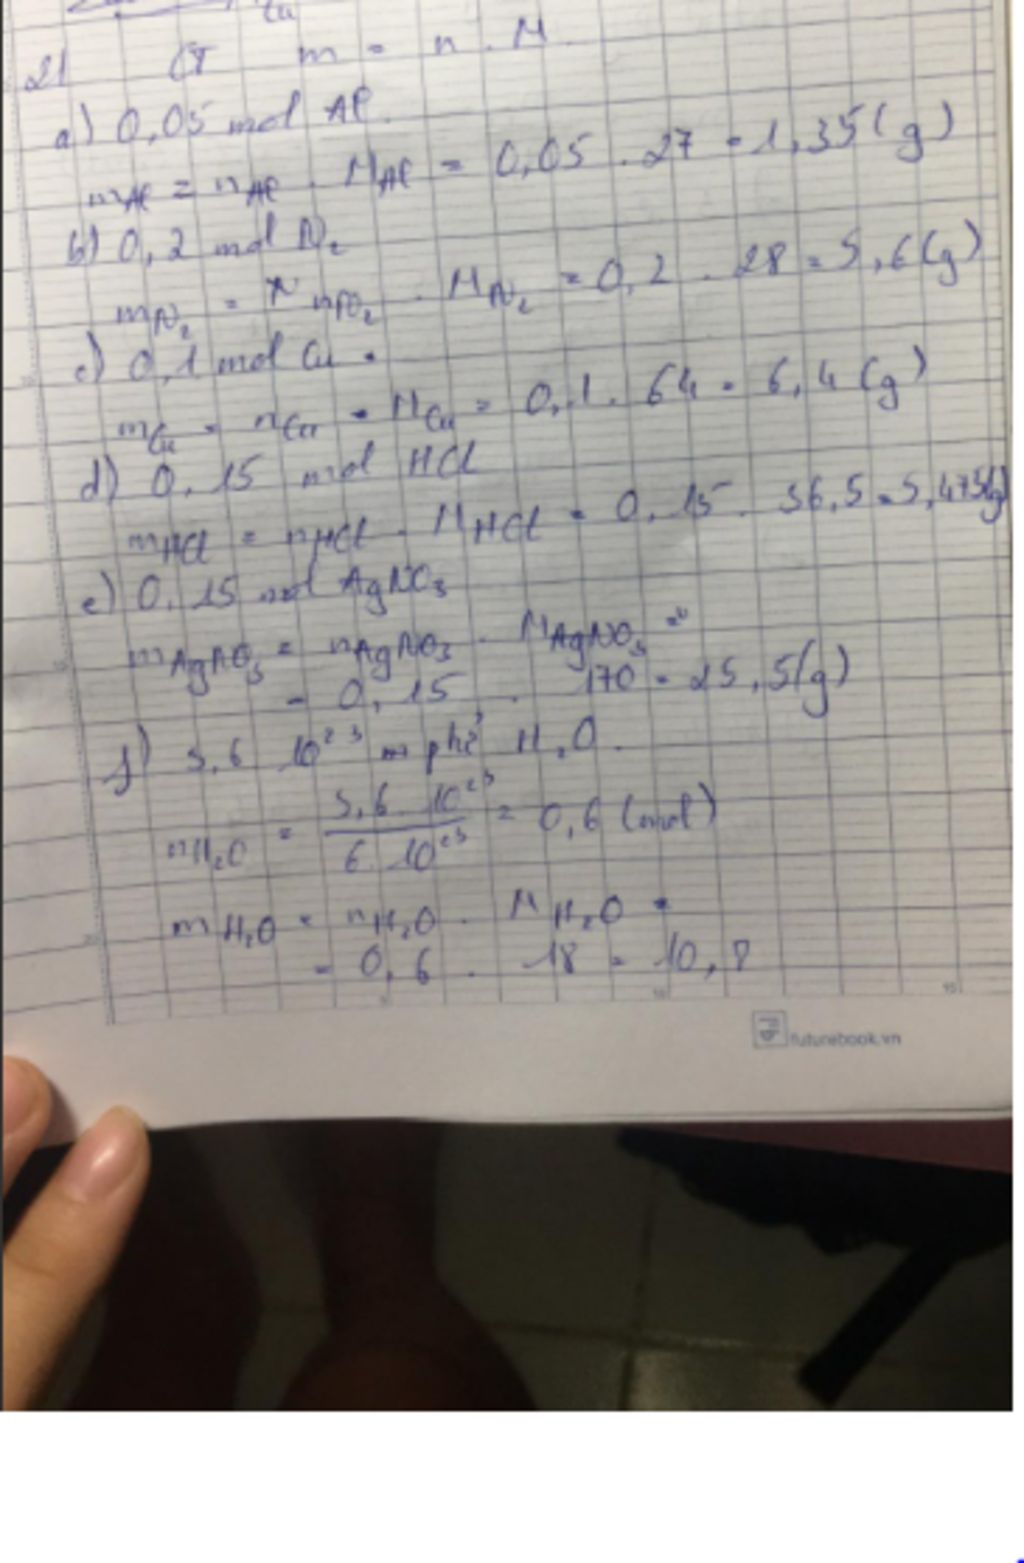 Cu
21 CT m = n . M
a) 0,05 mol Al
mAl = nAl . MAl = 0,05 . 27 = 1,35 (g)
b) 0,2 mol N2
mN2 = nN2 . MN2 = 0,2 . 28 = 5,6 (g)
c) 0,1 mol Cu.
mCu = nCu . MCu = 0,1 . 64 = 6,4 (g)
d) 0,15 mol HCl
mHCl = nHCl . MHCl = 0,15 . 36,5 = 5,475(g)
e) 0,15 mol AgNO3
mAgNO3 = nAgNO3 . MAgNO3 =
= 0,15 . 170 = 25,5(g)
f) 3,6 10^23 phử H2O.
nH2O = 3,6 10^23 / 6 10^23 = 0,6 (mol)
mH2O = nH2O . MH2O =
= 0,6 . 18 = 10,8
futurebook.vn